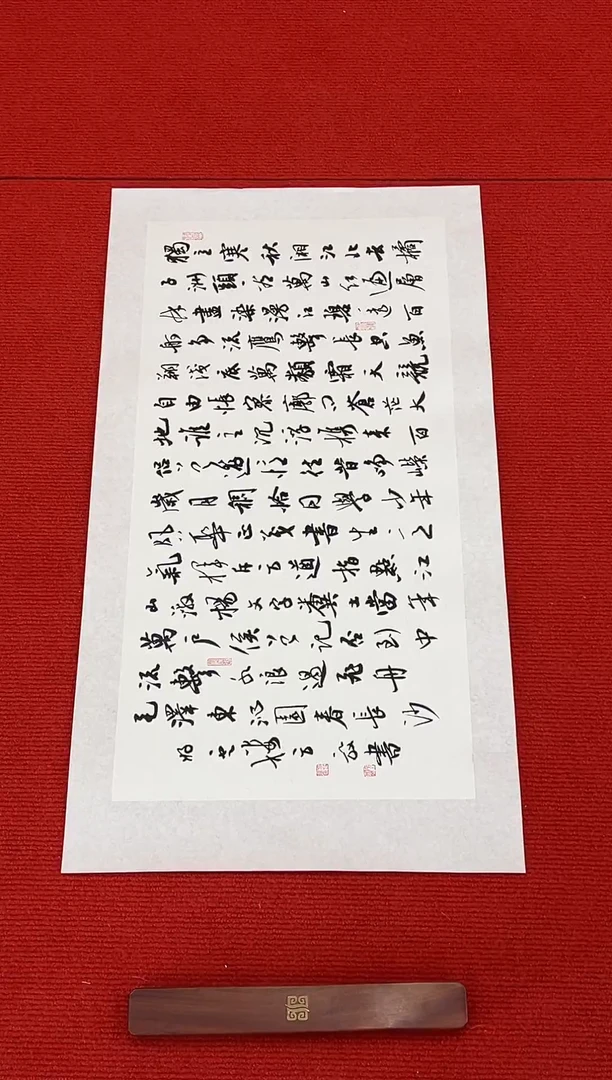 獨立寒秋湘江北去橘
子洲頭看萬山紅遍層
林盡染漫江碧透百
舸爭流鷹擊長空魚
翔淺底萬類霜天競
自由悵寥廓問蒼茫大
地誰主沉浮攜來百
侶曾遊憶往昔崢嶸
歲月稠恰同學少年
風華正茂書生
氣揮斥方遒指點江
山激揚文字糞土當年
萬戶侯曾記否到中
流擊水浪遏飛舟
毛澤東沁園春長沙
書